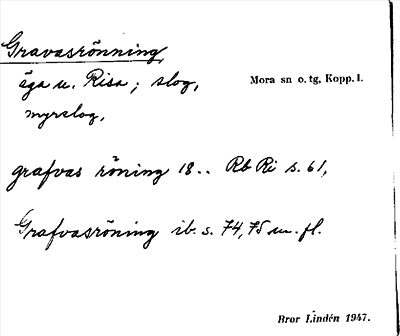 Gravasrönning,
äga u. Risa; slog, Mora sn o. tg, Kopp. l.
myrslog,
grafvas röning 18.. Rb Ri s. 61,
Grafvasröning ib. s. 74, 75 m. fl.
Bror Lindén 1947.